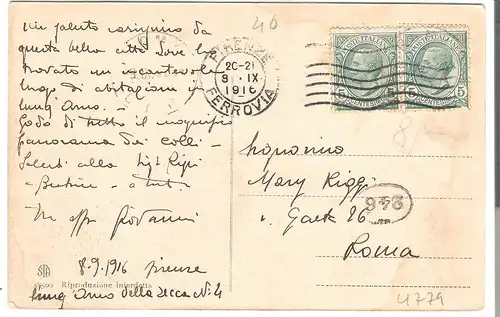 Un saluto carissimo da
questa bella città dove ho
trovato un incantevole
luogo di abitazione in
lung'Arno.
Godo di tutto il magnifico
panorama dei colli.
Saluti alla Sig.ra
a tutti
Un aff. Giovanni
8.9.1916 Firenze
Lung'Arno della Zecca N. 4
STA
Riproduzione interdetta
40
FIRENZE
20-21
8 · IX
1916
FERROVIA
POSTE ITALIANE
5 CENTESIMI 5
POSTE ITALIANE
5 CENTESIMI 5
8/
Signorino
Mary Riggi
26
946
Roma
4779